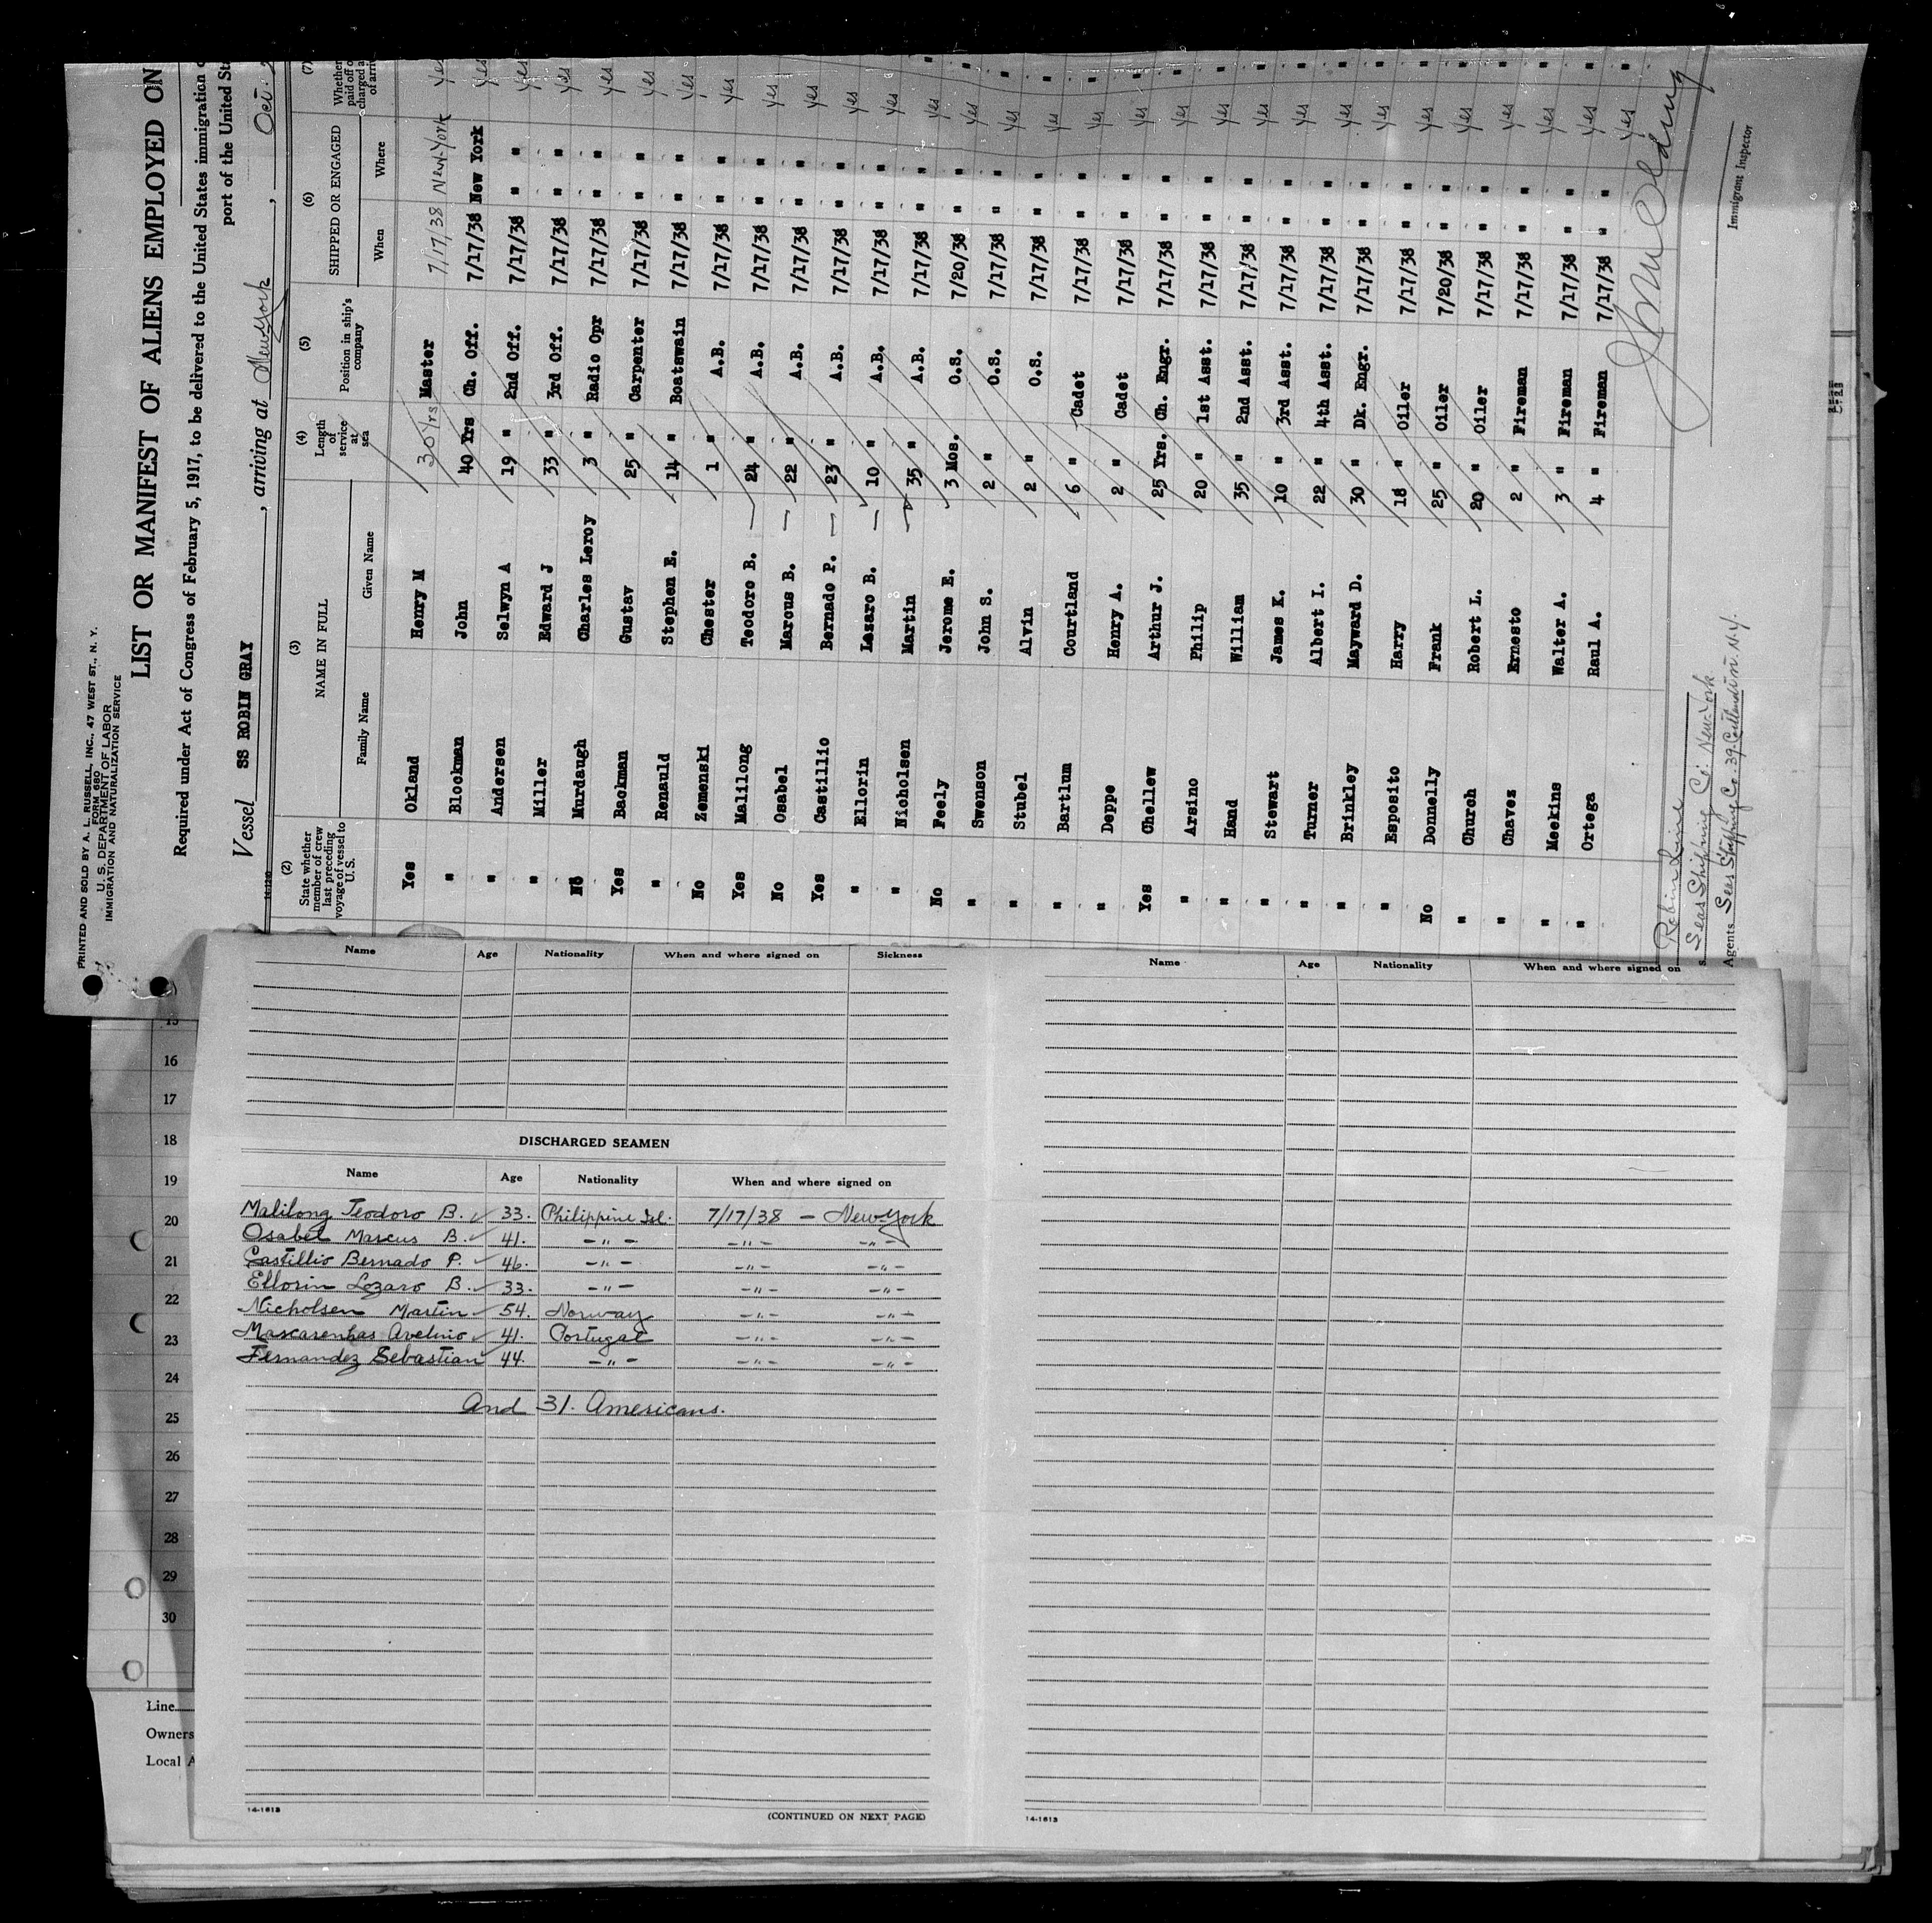 PRINTED AND SOLD BY A. L. RUSSELL, INC., 47 WEST ST., N. Y.
FORM 680
U. S. DEPARTMENT OF LABOR
IMMIGRATION AND NATURALIZATION SERVICE
LIST OR MANIFEST OF ALIENS EMPLOYED ON
Required under Act of Congress of February 5, 1917, to be delivered to the United States immigration
port of the United
Vessel SS ROBIN GRAY, arriving at New York, Oct. 2
(2) (3) (4) (5) (6) (7)
State whether member of crew last preceding voyage of vessel to U.S. NAME IN FULL Length of service at sea Position in ship's company SHIPPED OR ENGAGED Whether paid off
Family Name Given Name When Where
Yes Okland Henry M 30 Yrs Master 7/17/38 New York Yes
" Blockman John 40 Yrs Ch. Off. 7/17/38 New York Yes
" Andersen Selwyn A 19 " 2nd Off. 7/17/38 " " Yes
" Miller Edward J 33 " 3rd Off. 7/17/38 " " Yes
No Murdaugh Charles Leroy 3 " Radio Opr 7/17/38 " " Yes
Yes Backman Gustav 25 " Carpenter 7/17/38 " " Yes
" Renauld Stephen E. 14 " Boatswain 7/17/38 " " Yes
No Zemenski Chester 1 " A.B. 7/17/38 " " Yes
Yes Malilong Teodoro B. 24 " A.B. 7/17/38 " " Yes
No Osabel Marcus B. 22 " A.B. 7/17/38 " " Yes
Yes Castillio Bernado P. 23 " A.B. 7/17/38 " " Yes
" Ellorin Lazaro B. 10 " A.B. 7/17/38 " " Yes
" Nicholsen Martin 35 " A.B. 7/17/38 " " Yes
No Feely Jerome E. 3 Mos. O.S. 7/20/38 " " Yes
" Swenson John S. 2 " O.S. 7/17/38 " " Yes
" Stubel Alvin 2 " O.S. 7/17/38 " " Yes
" Bartlum Courtland 6 " Cadet 7/17/38 " " Yes
" Deppe Henry A. 2 " Cadet 7/17/38 " " Yes
Yes Chellew Arthur J. 25 Yrs. Ch. Engr. 7/17/38 " " Yes
" Arsino Philip 20 " 1st Asst. 7/17/38 " " Yes
" Hand William 35 " 2nd Asst. 7/17/38 " " Yes
" Stewart James K. 10 " 3rd Asst. 7/17/38 " " Yes
" Turner Albert I. 22 " 4th Asst. 7/17/38 " " Yes
" Brinkley Mayward D. 30 " Dk. Engr. 7/17/38 " " Yes
" Esposito Harry 18 " Oiler 7/17/38 " " Yes
No Donnelly Frank 25 " Oiler 7/20/38 " " Yes
" Church Robert L. 20 " Oiler 7/17/38 " " Yes
" Chavez Ernesto 2 " Fireman 7/17/38 " " Yes
" Meekins Walter A. 3 " Fireman 7/17/38 " " Yes
" Ortega Raul A. 4 " Fireman 7/17/38 " " Yes
Robin Line
Seas Shipping Co. New York
Agents Seas Shipping Co. 39 N.Y.
Immigrant Inspector
Name Age Nationality When and where signed on Sickness
DISCHARGED SEAMEN
Name Age Nationality When and where signed on
Malilong Teodoro B. 33. Philippine Isl. 7/17/38 — New York
Osabel Marcus B. 41. -"- -"- -"-
Castillio Bernado P. 46. -"- -"- -"-
Ellorin Lozaro B. 33. -"- -"- -"-
Nicholsen Martin 54. Norway -"- -"-
Mascarenhas Avelino 41. Portugal -"- -"-
Fernandez Sebastian 44. -"- -"- -"-
And 31. Americans.
14-1613
(CONTINUED ON NEXT PAGE)
Name Age Nationality When and where signed on
14-1613
15
16
17
18
19
20
21
22
23
24
25
26
27
28
29
30
Line
Owners
Local A